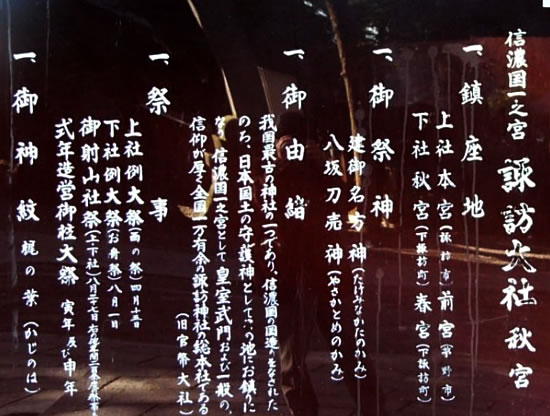 信濃国一之宮 諏訪大社 秋宮
一、鎮座地
上社本宮（諏訪市）前宮（茅野市）
下社秋宮（下諏訪町）春宮（下諏訪町）
一、御祭神
建御名方神（たけみなかたのかみ）
八坂刀売神（やさかとめのかみ）
一、御由緒
我国最古の神社の一つであり、信濃国の国造りをなされた
のち、日本国土の守護神として、この地にお鎮りに
なり信濃国一之宮として皇室武門および一般の、
信仰が厚く全国一万有余の諏訪神社の総本社である
（旧官幣大社）
一、祭事
上社例大祭（酉の祭）四月十五日
下社例大祭（お舟祭）八月一日
御射山社祭（上下社）八月二十七日
式年造営御柱大祭 寅年及び申年
一、御神紋 梶の葉（かじのは）